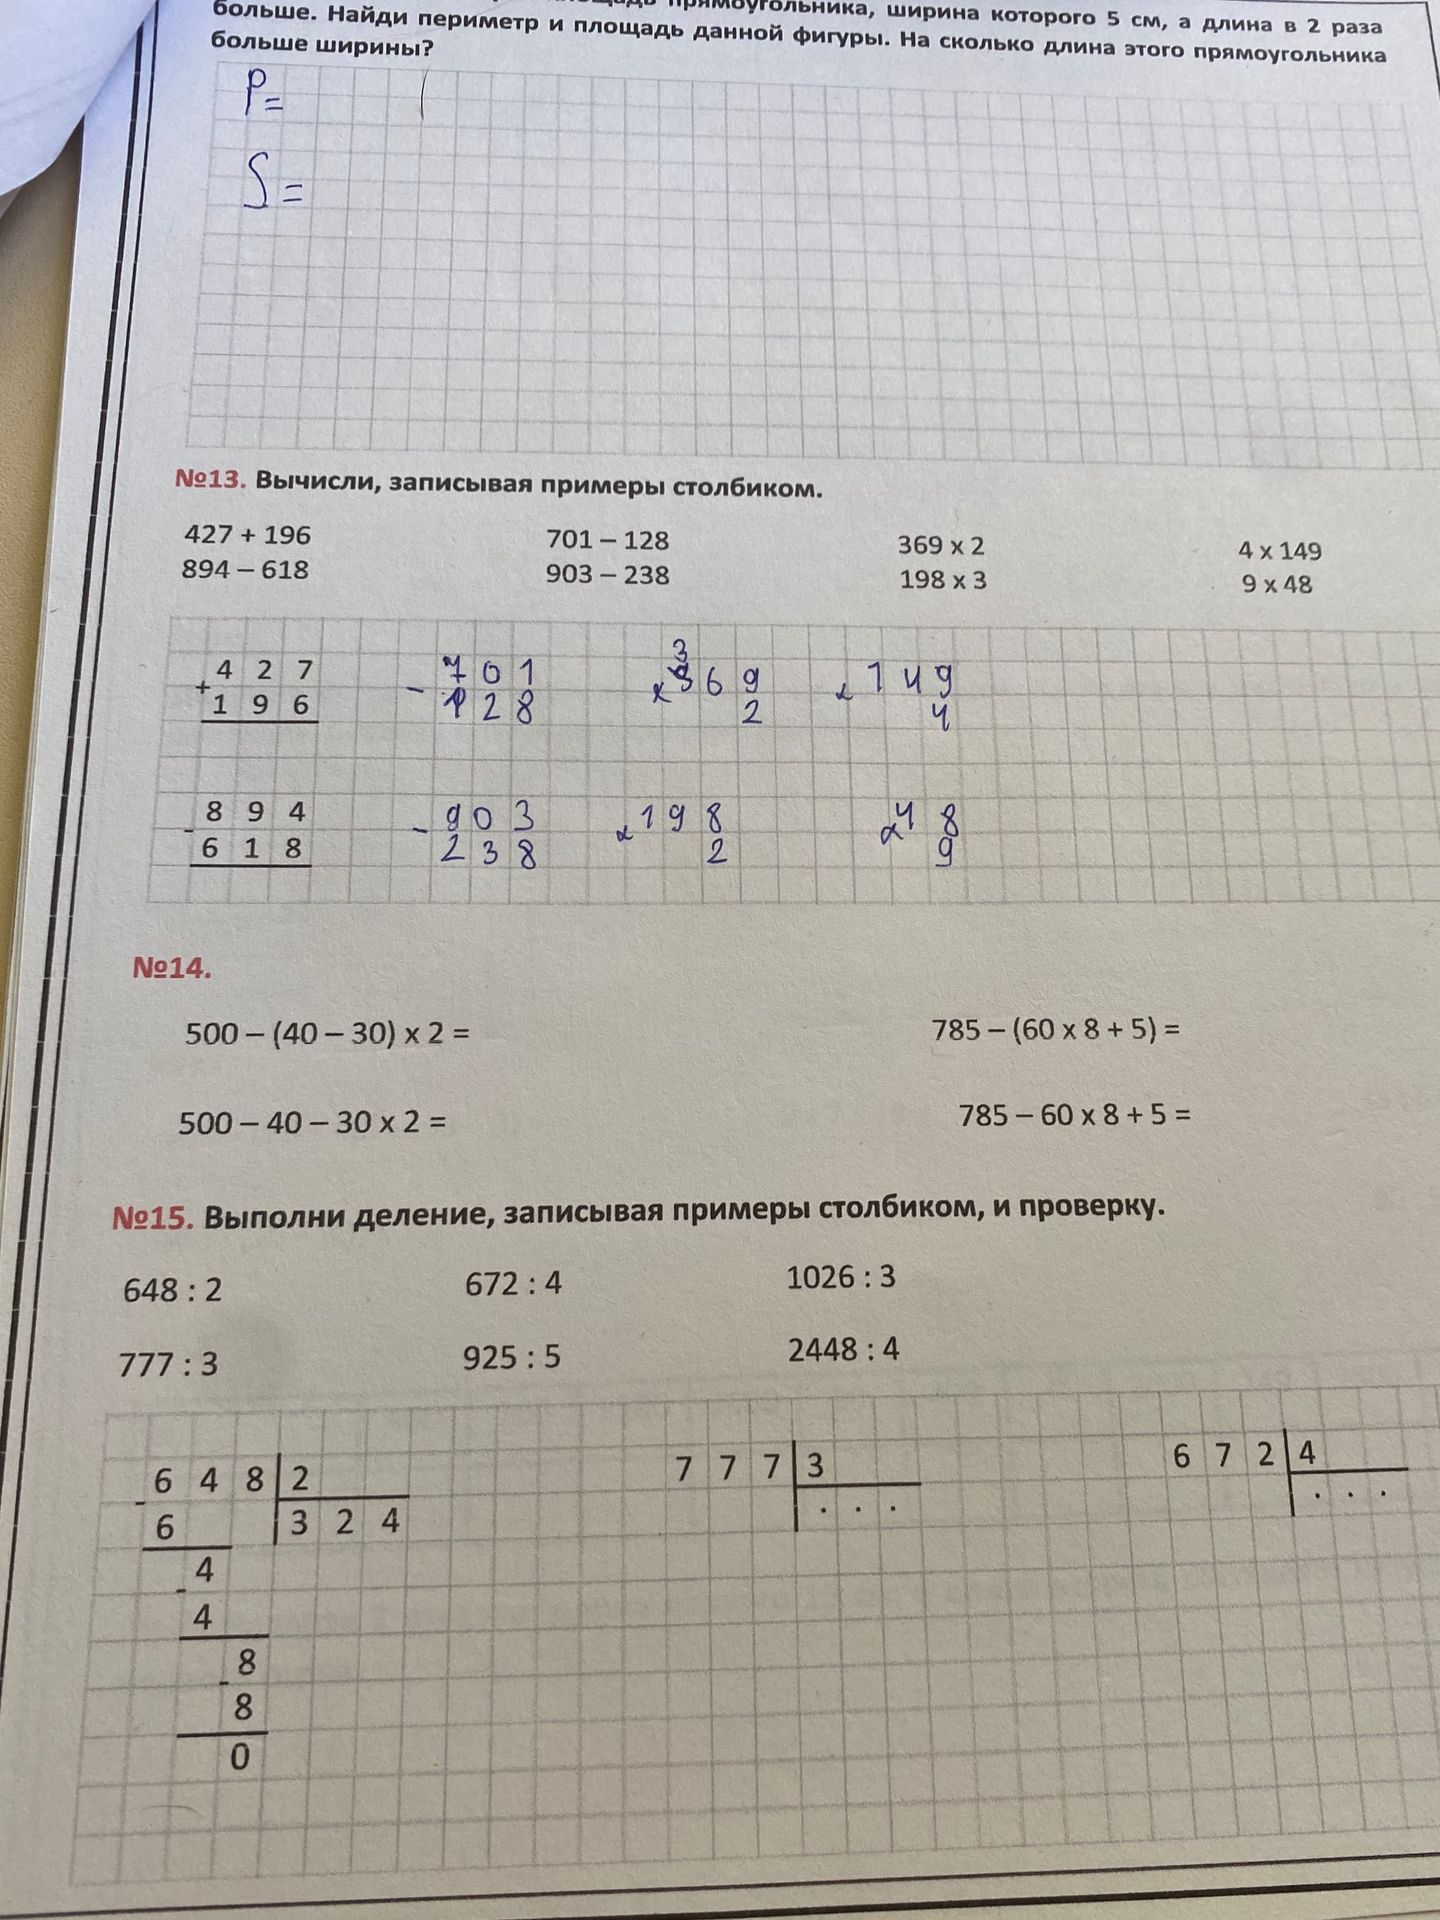 прямоугольника, ширина которого 5 см, а длина в 2 раза
больше. Найди периметр и площадь данной фигуры. На сколько длина этого прямоугольника
больше ширины?
P=
S=
№13. Вычисли, записывая примеры столбиком.
427 + 196 701 – 128 369 x 2 4 x 149
894 – 618 903 – 238 198 x 3 9 x 48
3
+ 4 2 7 - 7 0 1 x 3 6 9 x 1 4 9
1 9 6 1 2 8 2 4
- 8 9 4 - 9 0 3 x 1 9 8 x 4 8
6 1 8 2 3 8 2 9
№14.
500 – (40 – 30) x 2 = 785 – (60 x 8 + 5) =
500 – 40 – 30 x 2 = 785 – 60 x 8 + 5 =
№15. Выполни деление, записывая примеры столбиком, и проверку.
648 : 2 672 : 4 1026 : 3
777 : 3 925 : 5 2448 : 4
- 6 4 8 2 7 7 7 3 6 7 2 4
6 3 2 4 . . . . . .
- 4
4
- 8
8
0